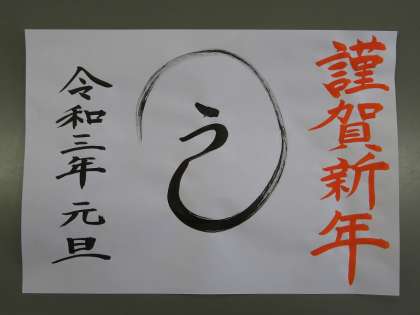 謹賀新年
うし
令和三年 元旦